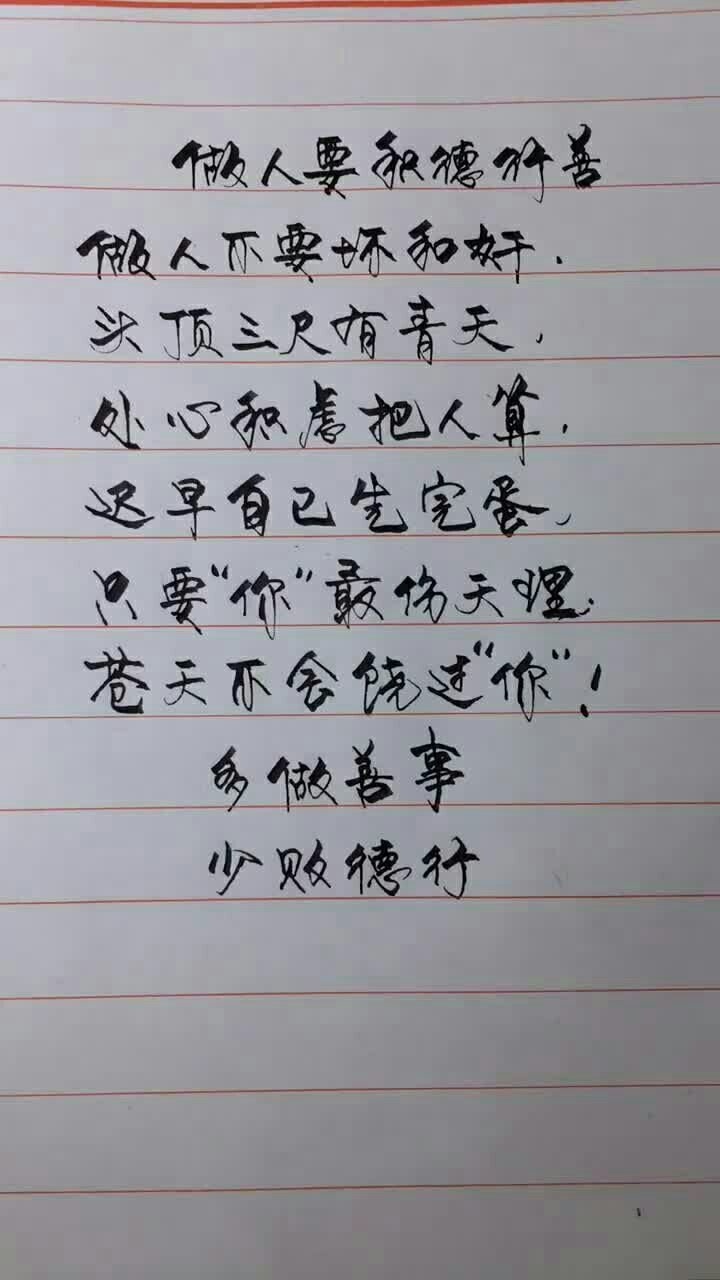 做人要积德行善
做人不要坏和奸.
头顶三尺有青天.
处心积虑把人算.
迟早自己先完蛋.
只要"你"最伤天理.
苍天不会饶过"你"!
多做善事
少败德行